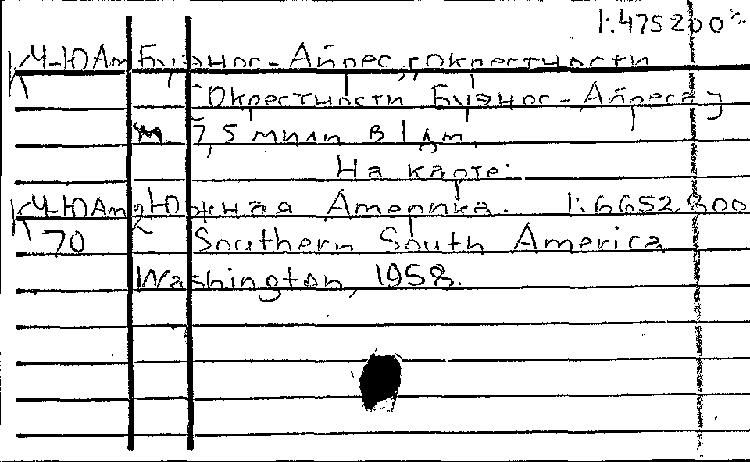 1:475200
К Ч-ЮАм Буэнос-Айрес, окрестности
[Окрестности Буэнос-Айреса]
м. 7,5 мили в 1 дм.
На карте:
К Ч-ЮАм Южная Америка. 1:6652800
70 2 Southern South America
Washington, 1958.